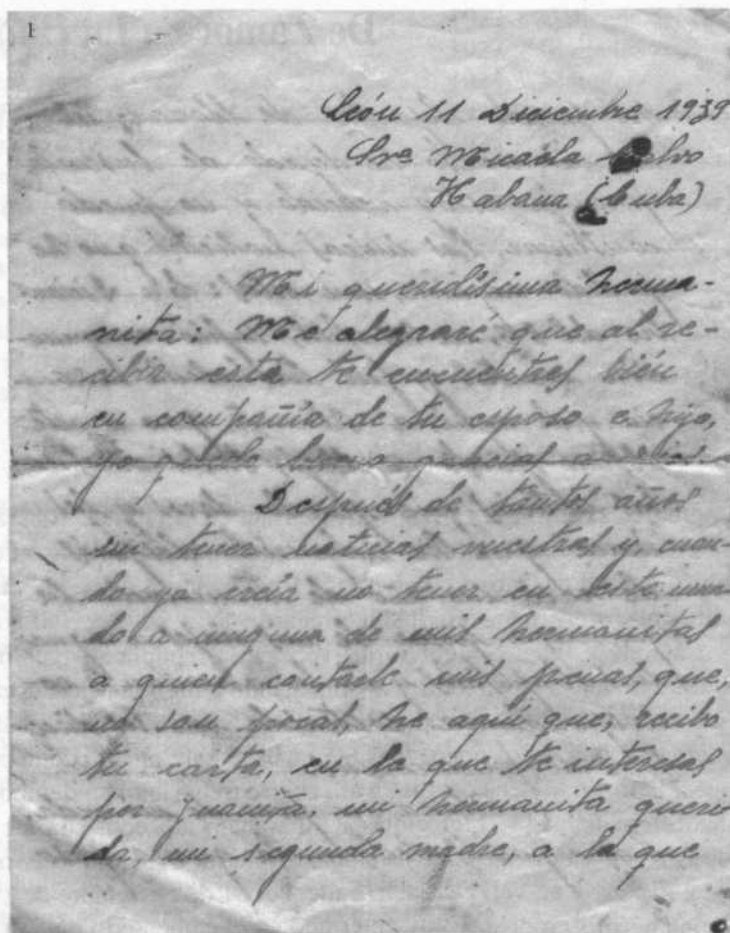 1
León 11 Diciembre 1939
Sra Micaela Calvo
Habana (Cuba)
Mi queridísima herma-
nita: Me alegraré que al re-
cibir esta te encuentres bién
en compañía de tu esposo e hijo,
yo quedo buena gracias a Dios.
Después de tantos años
sin tener noticias vuestras y, cuan-
do ya creía no tener en este mun-
do a ninguna de mis hermanitas
a quien contarle mis penas, que,
no son pocas, he aquí que, recibo
tu carta, en la que te interesas
por Juanita, mi hermanita queri-
da, mi segunda madre, a la que